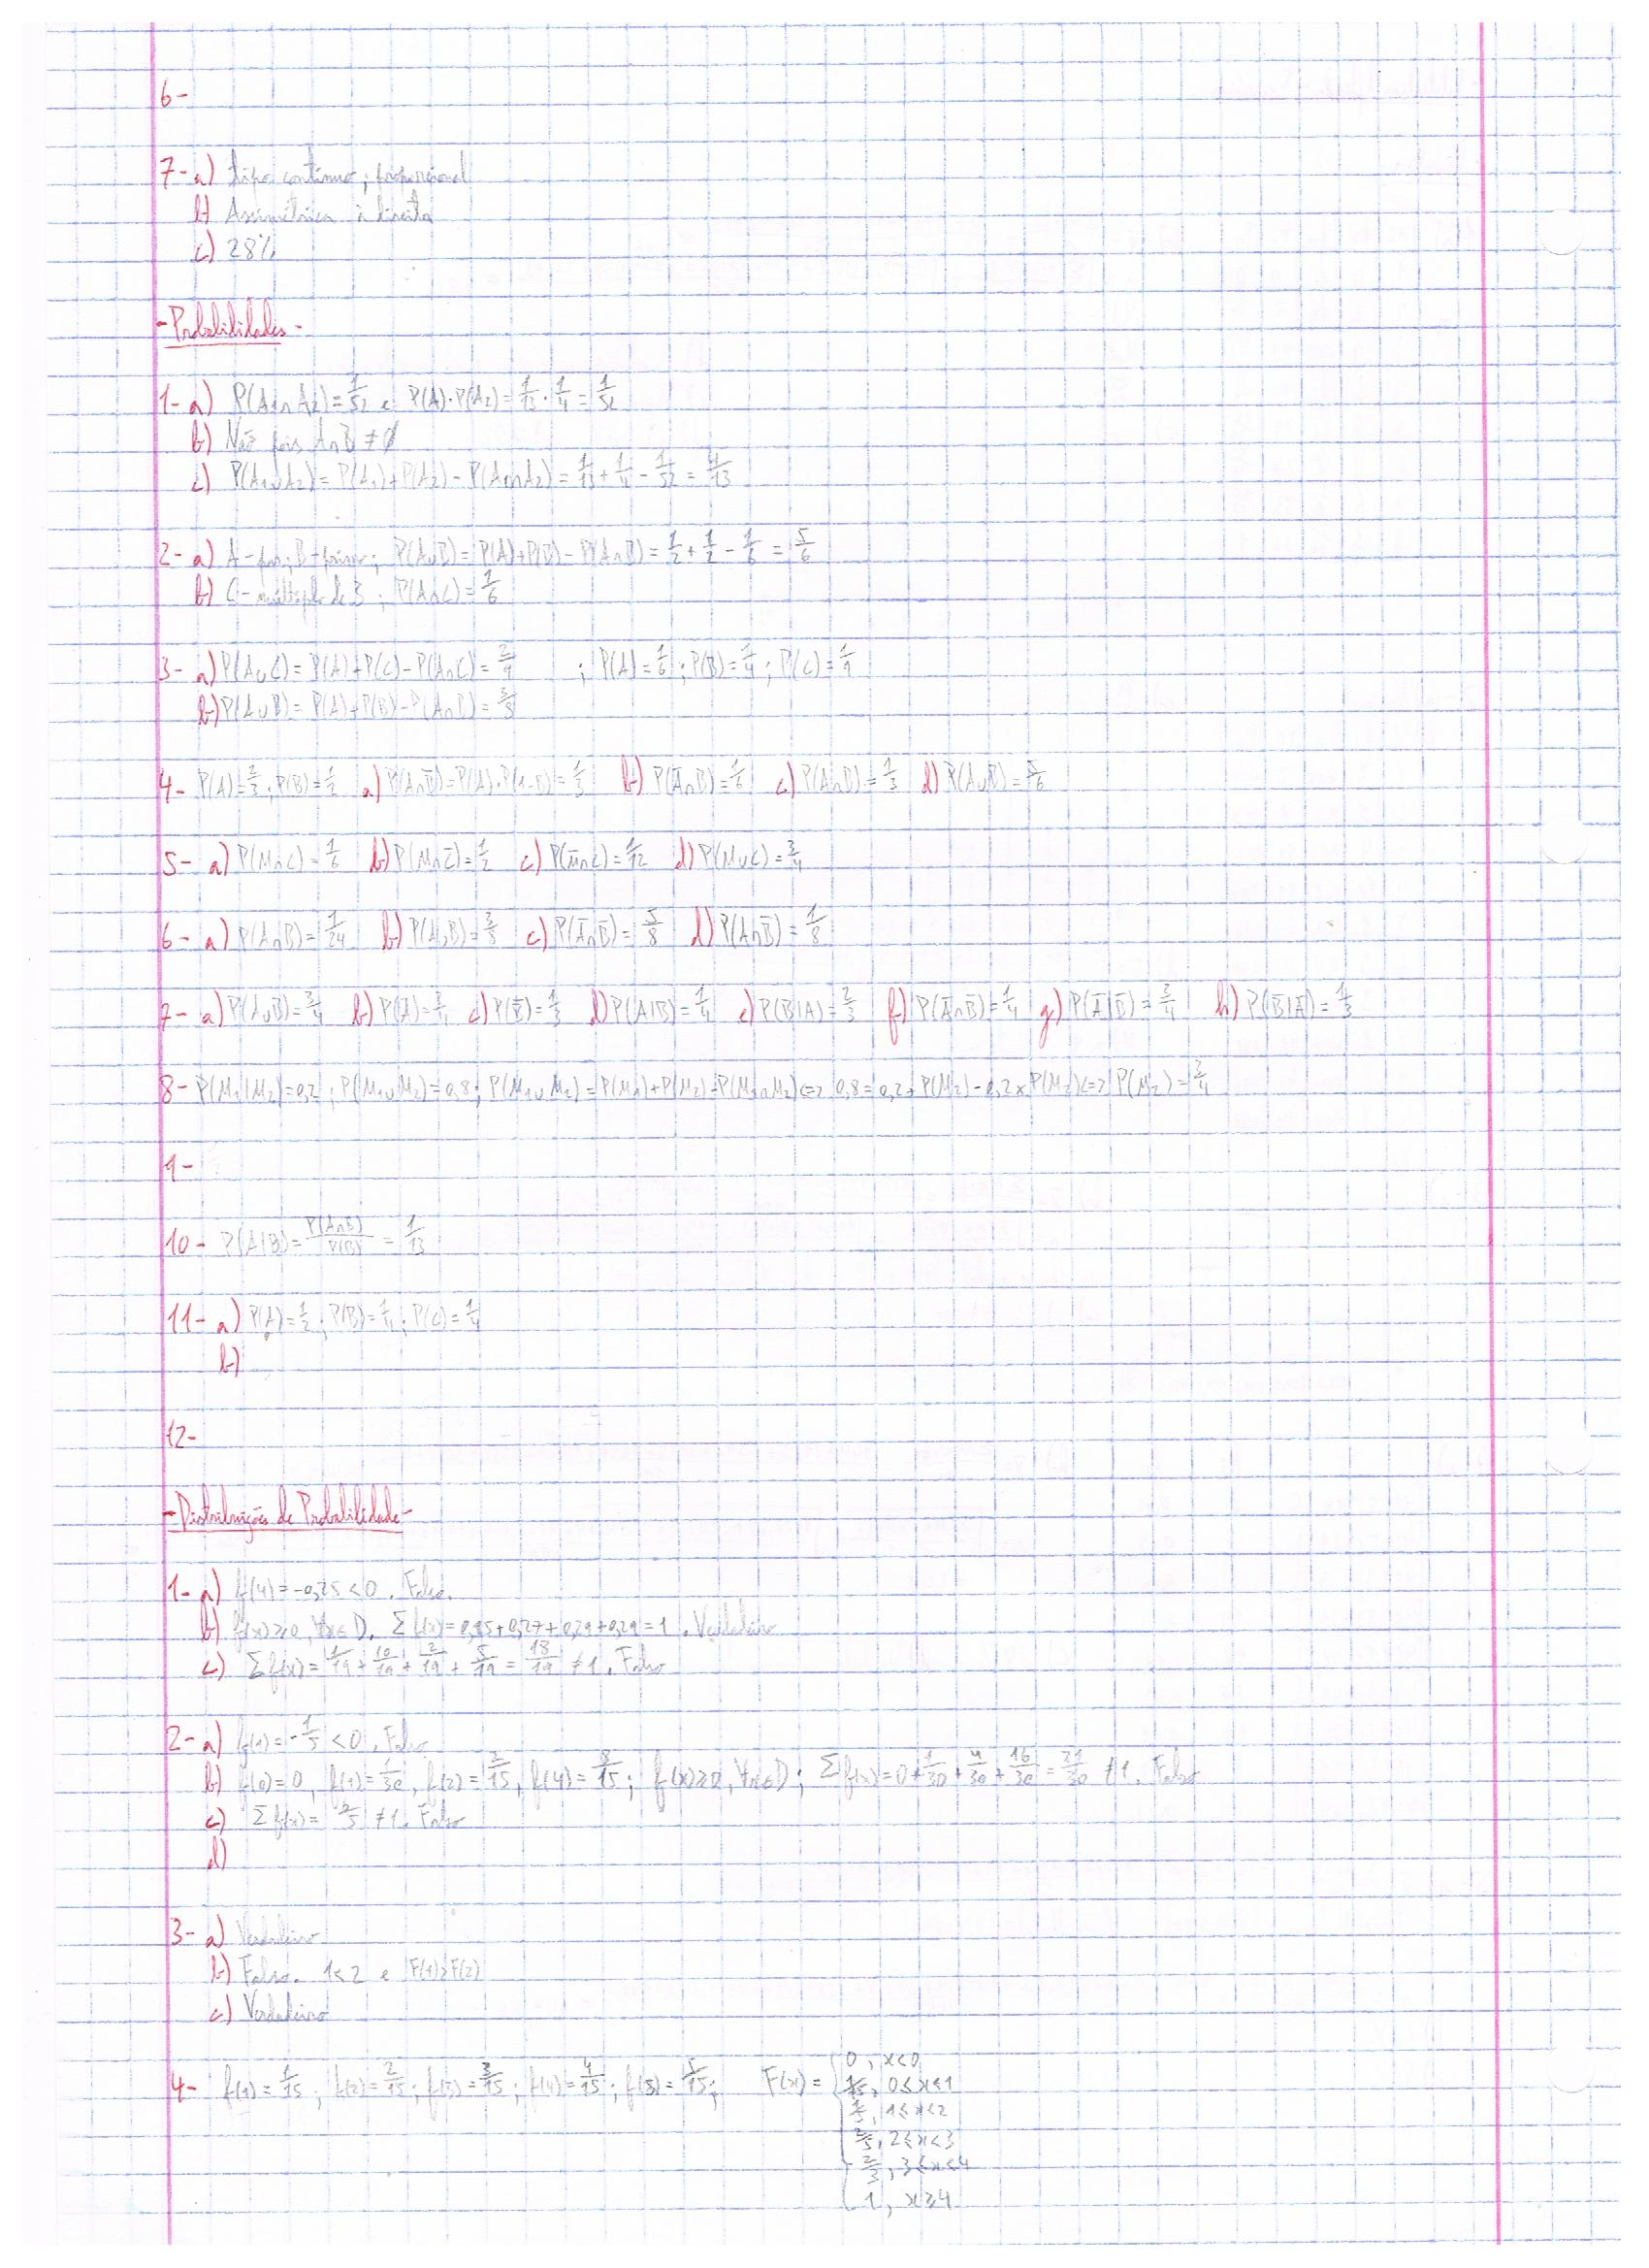 6-
7- a) tipo contínuo; proporcional
b) Assimétrica à direita
c) 28%
- Probabilidades -
1- a) P(A₁∩A₂) = 1/52 e P(A₁)·P(A₂) = 1/13 · 1/4 = 1/52
b) Não pois A∩B ≠ ∅
c) P(A₁∪A₂) = P(A₁)+P(A₂) - P(A₁∩A₂) = 1/13 + 1/4 - 1/52 = 4/13
2- a) A - par; B - primo; P(A∪B) = P(A)+P(B) - P(A∩B) = 1/2 + 1/2 - 1/6 = 5/6
b) C - múltiplo de 3; P(A∩C) = 1/6
3- a) P(A∪C) = P(A)+P(C) - P(A∩C) = 2/9 ; P(A) = 1/6; P(B) = 1/4; P(C) = 1/9
b) P(A∪B) = P(A)+P(B) - P(A∩B) =
4- P(A) = 2/3; P(B) = 1/2 a) P(A∩B̅) = = 1/3 b) P(A̅∩B) = 1/6 c) P(A∩B) = 1/3 d) P(A∪B) = 5/6
5- a) P(M∩C) = 1/6 b) P(M∩C̅) = 1/2 c) P(M̅∩C) = 1/12 d) P(M∪C) = 3/4
6- a) P(A∩B) = 1/24 b) P(A∪B) = 3/8 c) P(A̅∩B̅) = 5/8 d) P(A∩B̅) = 1/8
7- a) P(A∪B) = 3/4 b) P(A̅) = 3/4 c) P(B̅) = 1/3 d) P(A|B) = 1/4 e) P(B|A) = 2/3 f) P(A̅∩B̅) = 1/4 g) P(A̅|B̅) = 3/4 h) P(B̅|A̅) = 1/3
8- P(M₁|M₂) = 0,2; P(M₁∪M₂) = 0,8; P(M₁∪M₂) = P(M₁)+P(M₂)-P(M₁∩M₂) <=> 0,8 = 0,2 + P(M₂) - 0,2×P(M₂) <=> P(M₂) = 3/4
9-
10- P(A|B) = P(A∩B)/P(B) = 1/13
11- a) P(A) = 1/2; P(B) = 1/4; P(C) = 1/4
b)
12-
- Distribuições de Probabilidade -
1- a) f(4) = -0,25 < 0. Falso.
b) f(x) ≥ 0, ∀x∈D. Σf(x) = 0,15+0,27+0,29+0,29 = 1. Verdadeiro
c) Σf(x) = 1/19 + 10/19 + 2/19 + 5/19 = 18/19 ≠ 1. Falso
2- a) f(1) = -1/5 < 0. Falso
b) f(0) = 0, f(1) = 1/30, f(2) = 2/15, f(4) = 8/15; f(x) ≥ 0, ∀x∈D; Σf(x) = 0 + 1/30 + 4/30 + 16/30 = 21/30 ≠ 1. Falso
c) Σf(x) = ≠ 1. Falso
d)
3- a) Verdadeiro
b) Falso. 1<2 e F(1)>F(2)
c) Verdadeiro
4- f(1) = 1/15; f(2) = 2/15; f(3) = 3/15; f(4) = 4/15; f(5) = 5/15; F(x) = { 0, x<0
1/15, 0≤x<1
1/5, 1≤x<2
2/5, 2≤x<3
2/3, 3≤x<4
1, x≥4